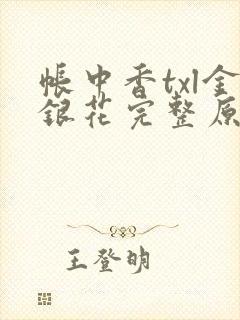 帐中香txl金
银花完整原
王登明